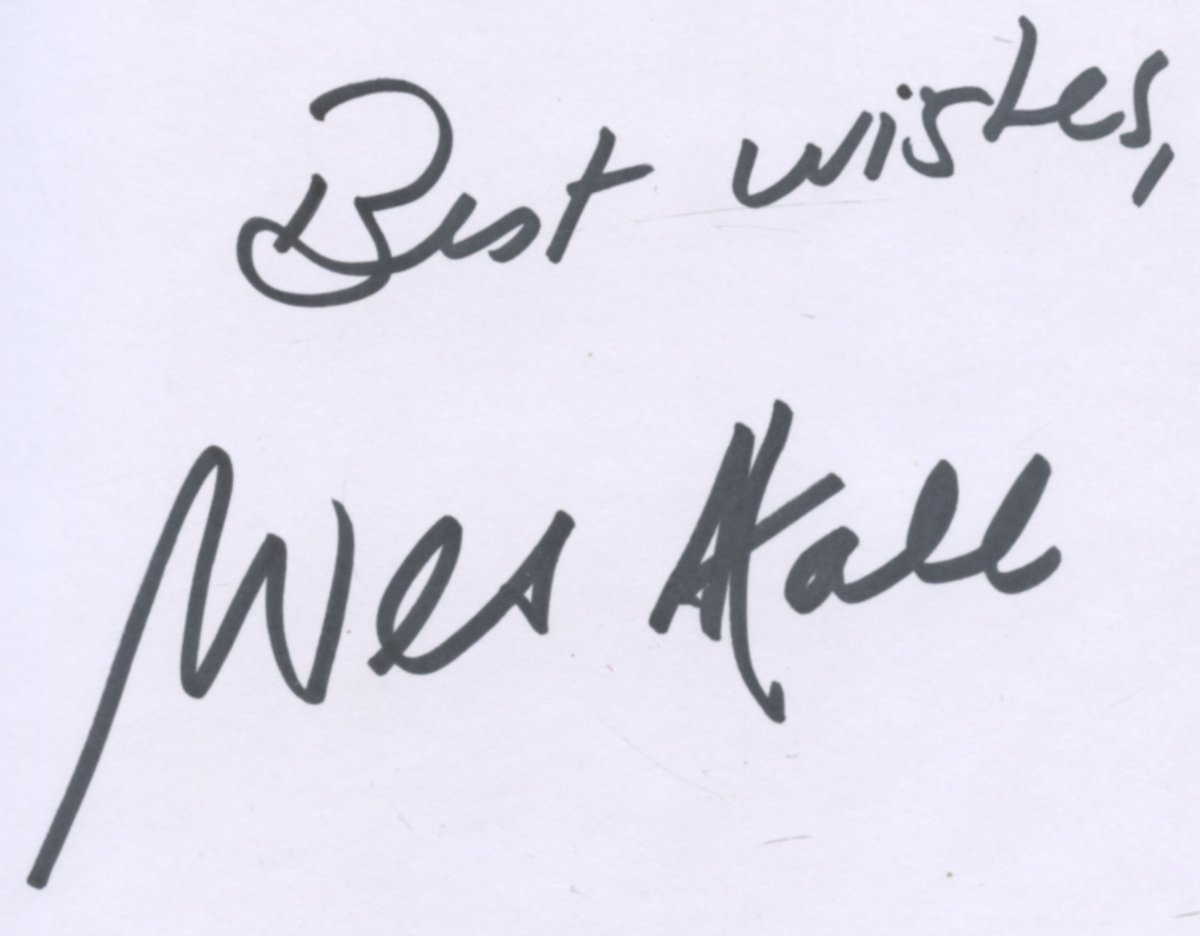 Best wishes,
Wes Hall